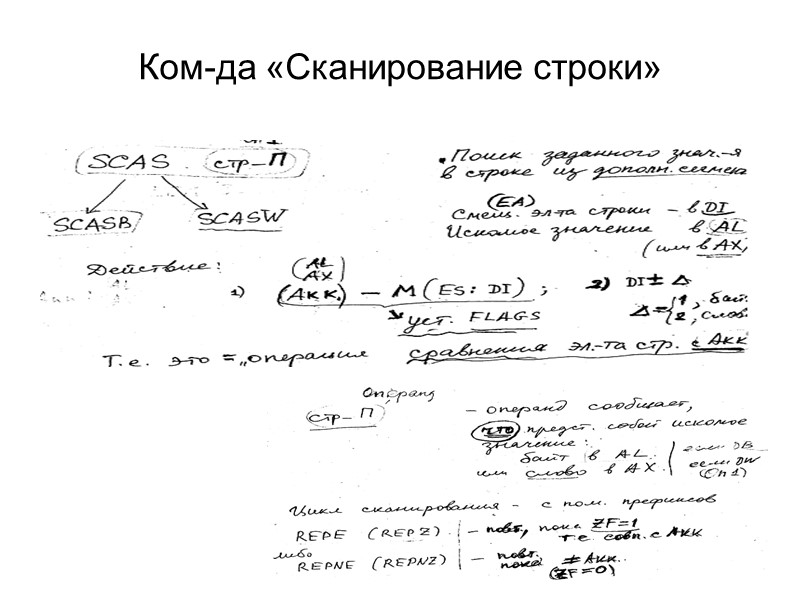 Ком-да «Сканирование строки»
SCAS стр-П
SCASB SCASW
• Поиск заданного знач.-я
в строке из дополн. сегмен
(EA)
Смещ. эл-та строки – в DI
Искомое значение в AL
(или в AX,
Действие:
(AL
AX)
1) (Акк.) – M (ES: DI) ; 2) DI ± Δ
Δ = { 1, байт.
2, слов.
уст. FLAGS
Т.е. это = „операция сравнения эл.-та стр. с Акк
Операнд
стр-П
– операнд сообщает,
что предст. собой искомое
значение:
байт в AL если DB
или слово в AX. если DW
(Оп1)
Цикл сканирования – с пом. префиксов
REPE (REPZ) – повт, пока ZF=1
т.е совп. с Акк
либо
REPNE (REPNZ) – повт.
пока ≠ Акк.
(ZF=0)